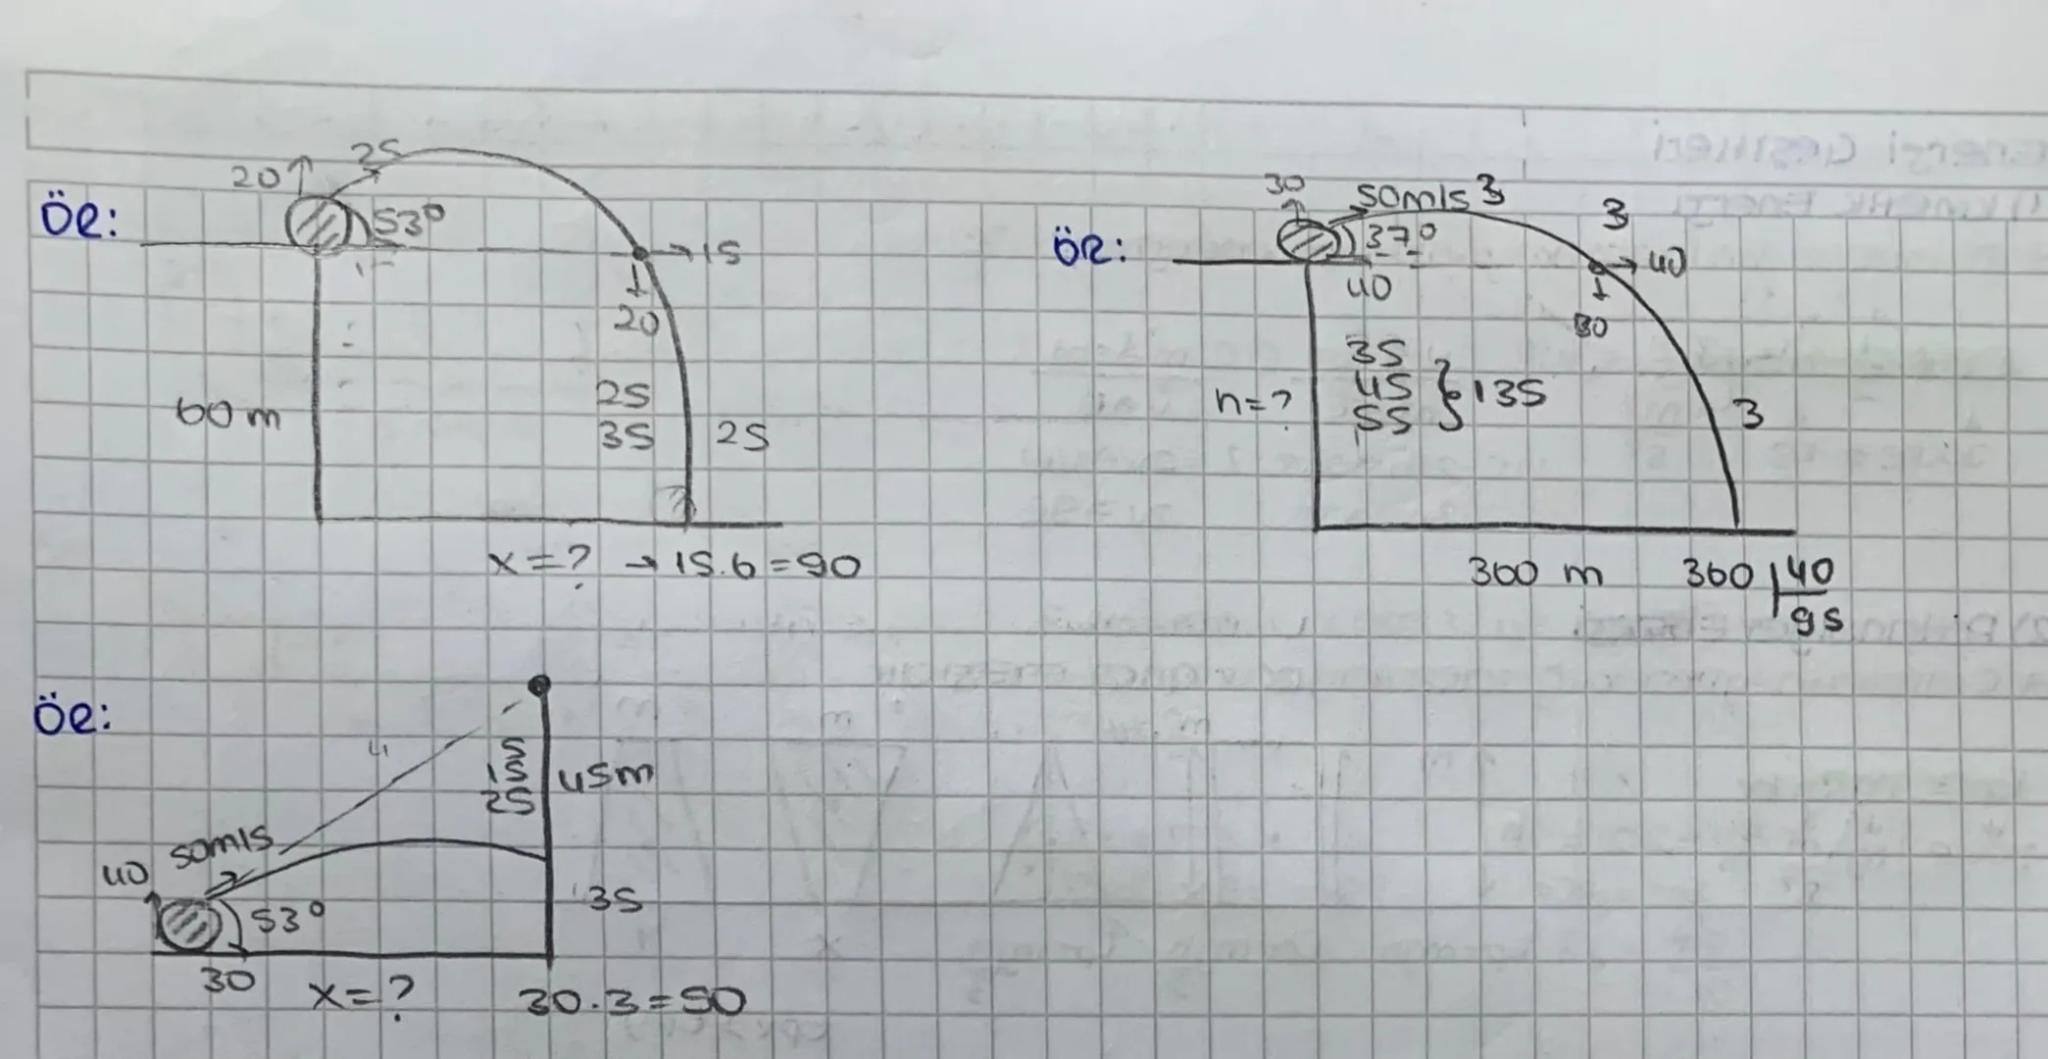 ÖR:
20
25
53°
15
20
60 m
25
35
25
x=? → 15.6=90
ÖR:
30
50m/s 3
3
37°
40
40
30
h=?
35
45 } 135
55
3
360 m
360 | 40
9s
ÖR:
5
15
25
45m
50m/s
40
53°
3s
30
x=?
30.3=90